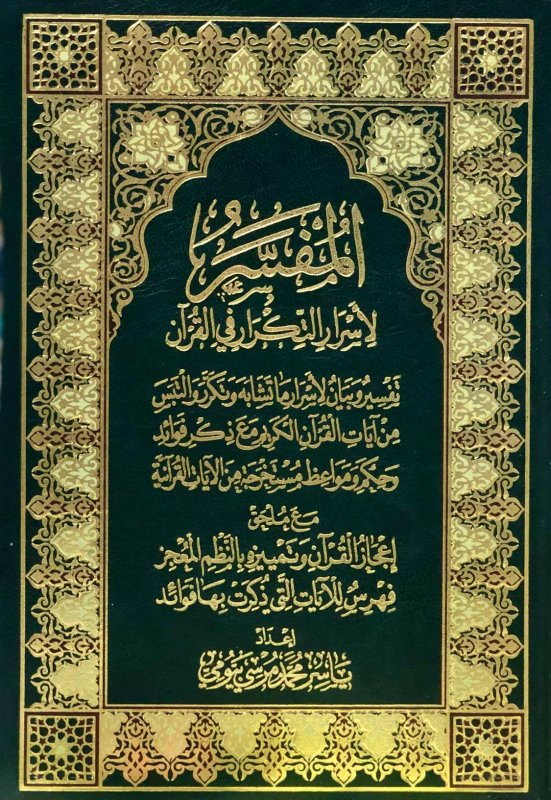 المُفَسِّر
لِأَسْرَارِ التِّكْرَارِ فِي القُرْآنِ
تَفْسِيرٌ وَبَيَانٌ لِأَسْرَارِ مَا تَشَابَهَ وَتَكَرَّرَ وَالْتَبَسَ
مِنْ آيَاتِ القُرْآنِ الكَرِيمِ مَعَ ذِكْرِ فَوَائِدَ
وَحِكَمٍ وَمَوَاعِظَ مُسْتَخْرَجَةٍ مِنَ الآيَاتِ القُرْآنِيَّةِ
مَعَ مُلْحَقِ
إِعْجَازُ القُرْآنِ وَتَمْيِيزِهِ بِالنَّظْمِ المُعْجِزِ
فِهْرِسٌ لِلْآيَاتِ الَّتِي ذُكِرَتْ بِهَا فَوَائِدُ
إعْدَاد
يَاسِر مُحَمَّد مُرْسِي بَيُّومِي